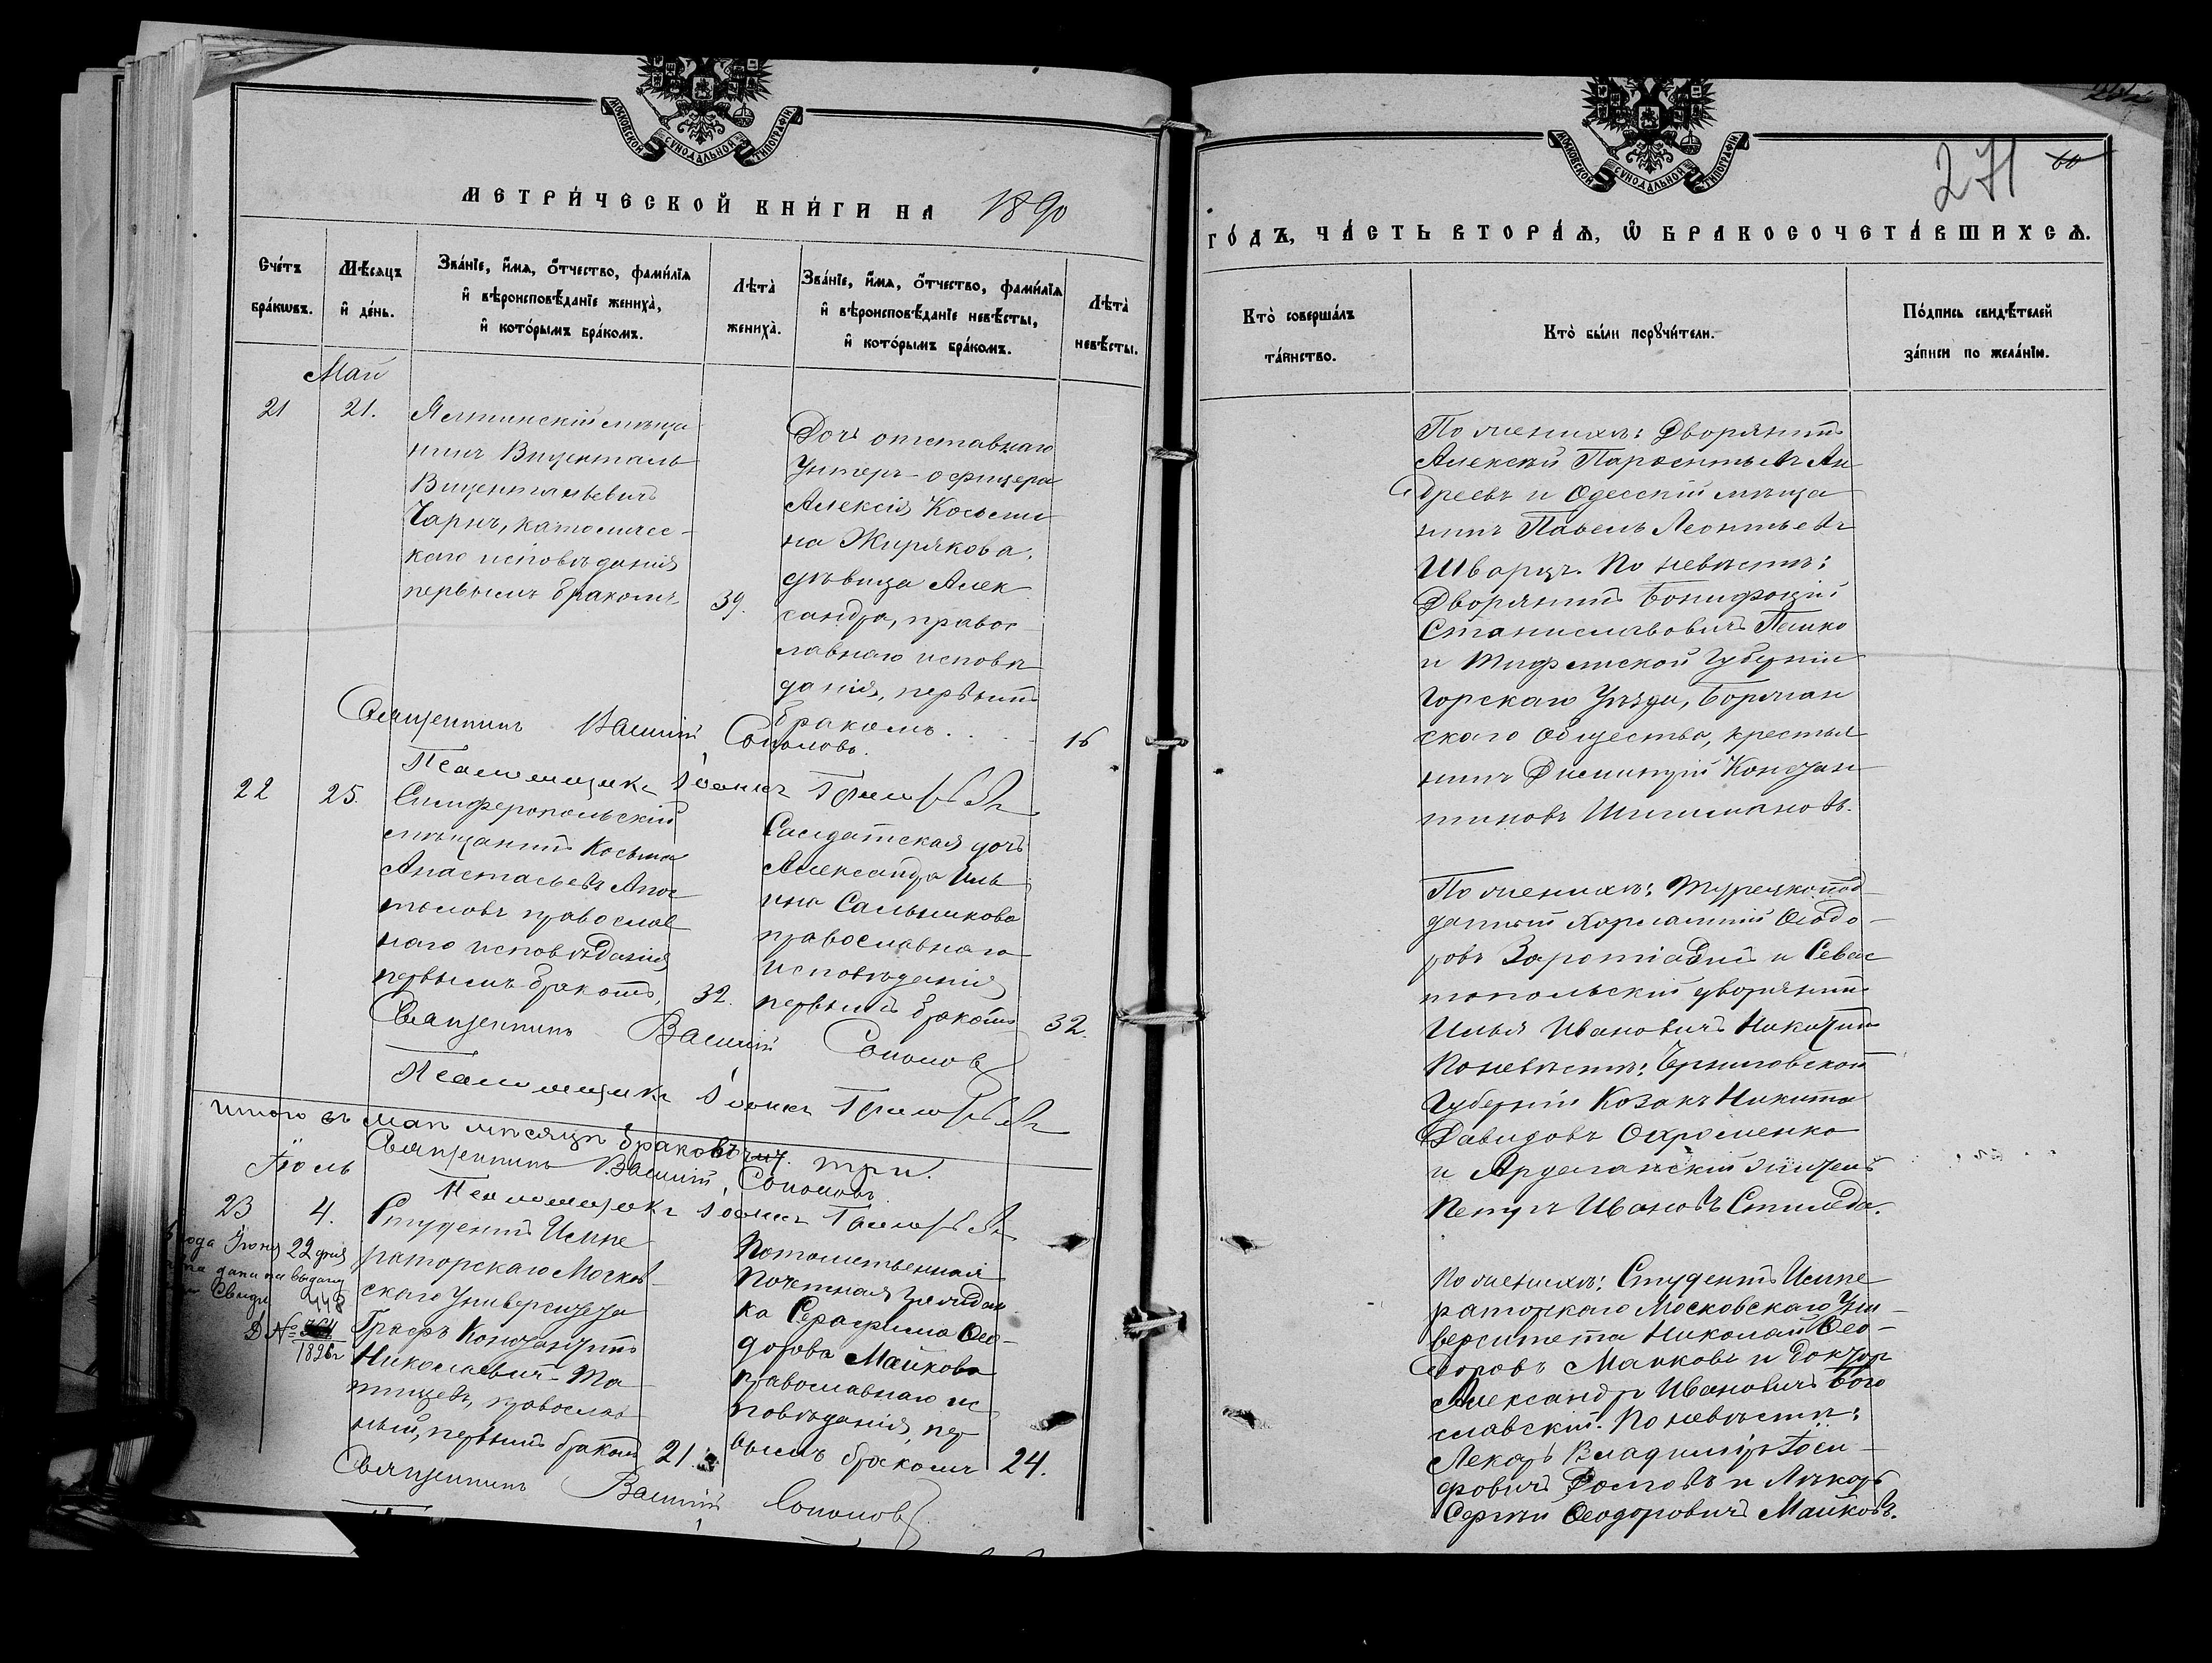 МОСКОВСКОЙ СѴНОДАЛЬНОЙ ТИПОГРАФІИ.
МЕТРИ́ЧЕСКОЙ КНИ́ГИ НА 1890
Сче́тъ бра́кѡвъ.
Мѣ́сѧцъ и҆ де́нь.
Зва́нїе, и҆́мѧ, ѻ҆́тчество, фами́лїѧ
и҆ вѣроисповѣ́данїе жениха̀,
и҆ кото́рымъ бра́комъ.
Лѣта̀
жениха̀.
Зва́нїе, и҆́мѧ, ѻ҆́тчество, фами́лїѧ
и҆ вѣроисповѣ́данїе невѣ́сты,
и҆ кото́рымъ бра́комъ.
Лѣта̀
невѣ́сты.
Май
21
21.
Ялтинскій мѣща
нинъ Вицентель
Вицентьевичъ
Чарнъ, католичес-
каго исповѣданія
первымъ бракомъ
39.
Дочь отставнаго
Унтеръ-офицера
Алексія Косьми
на Жирякова,
дѣвица Алек
сандра, правос
лавнаго исповѣ
данія, первымъ
бракомъ..
16
Священникъ Василій Сополовъ.
Псаломщикъ Іоаннъ
22
25.
Симферопольскій
мѣщанинъ Косьма
Анастасьевъ Апос
толовъ православ
наго исповѣданія
первымъ бракомъ,
32.
Салдатская дочь
Александра Иль
ина Сальникова
православнаго
исповѣданія
первымъ бракомъ
32.
Священникъ Василій Сополовъ
Псаломщикъ Іоаннъ
Итого въ маѣ мѣсяцѣ браковъ три.
Священникъ Василій Сополовъ.
Псаломщикъ Іоаннъ
Іюль
23
4.
Студентъ Импе
раторскаго Москов
скаго Университета
Графъ Константинъ
Николаевич-Та
тищевъ, православ
ный, первымъ бракомъ
21.
Потомственная
Почетная Граждан
ка Серафима Ѳео-
дорова Майкова
православнаго ис
повѣданія, пер
вымъ бракомъ
24.
года Іюня 22 дня
дана на выдачу
448
№
1896 г
Священникъ Василій Сополовъ
МОСКОВСКОЙ СѴНОДАЛЬНОЙ ТИПОГРАФІИ.
271 60
ГО́ДЪ, ЧА́СТЬ ВТОРА́Ѧ, Ѽ БРАКОСОЧЕТА́ВШИХСѦ.
Кто̀ соверша́лъ
та́инство.
Кто̀ бы́ли порꙋчи́тели.
По́дпись свидѣ́телей
за́писи по жела́нїю.
По женихѣ: Дворянинъ
Алексѣй Парфентьевъ Ан
дреевъ и Одесскій мѣща
нинъ Павелъ Леонтьевъ
Шварцъ. По невѣстѣ:
Дворянинъ Бонифацій
Станиславовичъ Пешко
и Тифлиской Губерніи
Горскаго Уѣзда, Боржан
скаго Общества, крестья
нинъ Дисмитрій Констан
тиновъ Шишмановъ.
По женихѣ: Турецкопод
данный Харлампій Ѳеодо-
ровъ и Севас
топольскій дворянинъ
Илья Ивановичъ Никитинъ
По невѣстѣ: Черниговской
Губерніи Козакъ Никита
Давидовъ Охроменко
и Ардаганскій житель
Петръ Ивановъ Стилиди.
По женихѣ: Студентъ Импе
раторскаго Московскаго Уни
верситета Николай Ѳео-
доровъ Майковъ и Докторъ
Александръ Ивановичъ Бого
славскій. По невѣстѣ:
Лекарь Владиміръ Іоси-
фовичъ Долговъ и Лѣкарь
Сергѣй Ѳеодоровичъ Майковъ.